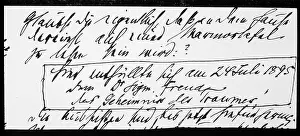 Glaubst Du eigentlich daß an dem Hause
dereinst auf einer Marmortafel
zu lesen sein wird?
Hier enthüllte sich am 24 Juli 1895
dem Dr Sigm. Freud
das Geheimnis des Traumes
Die Aussichten sind bis jetzt